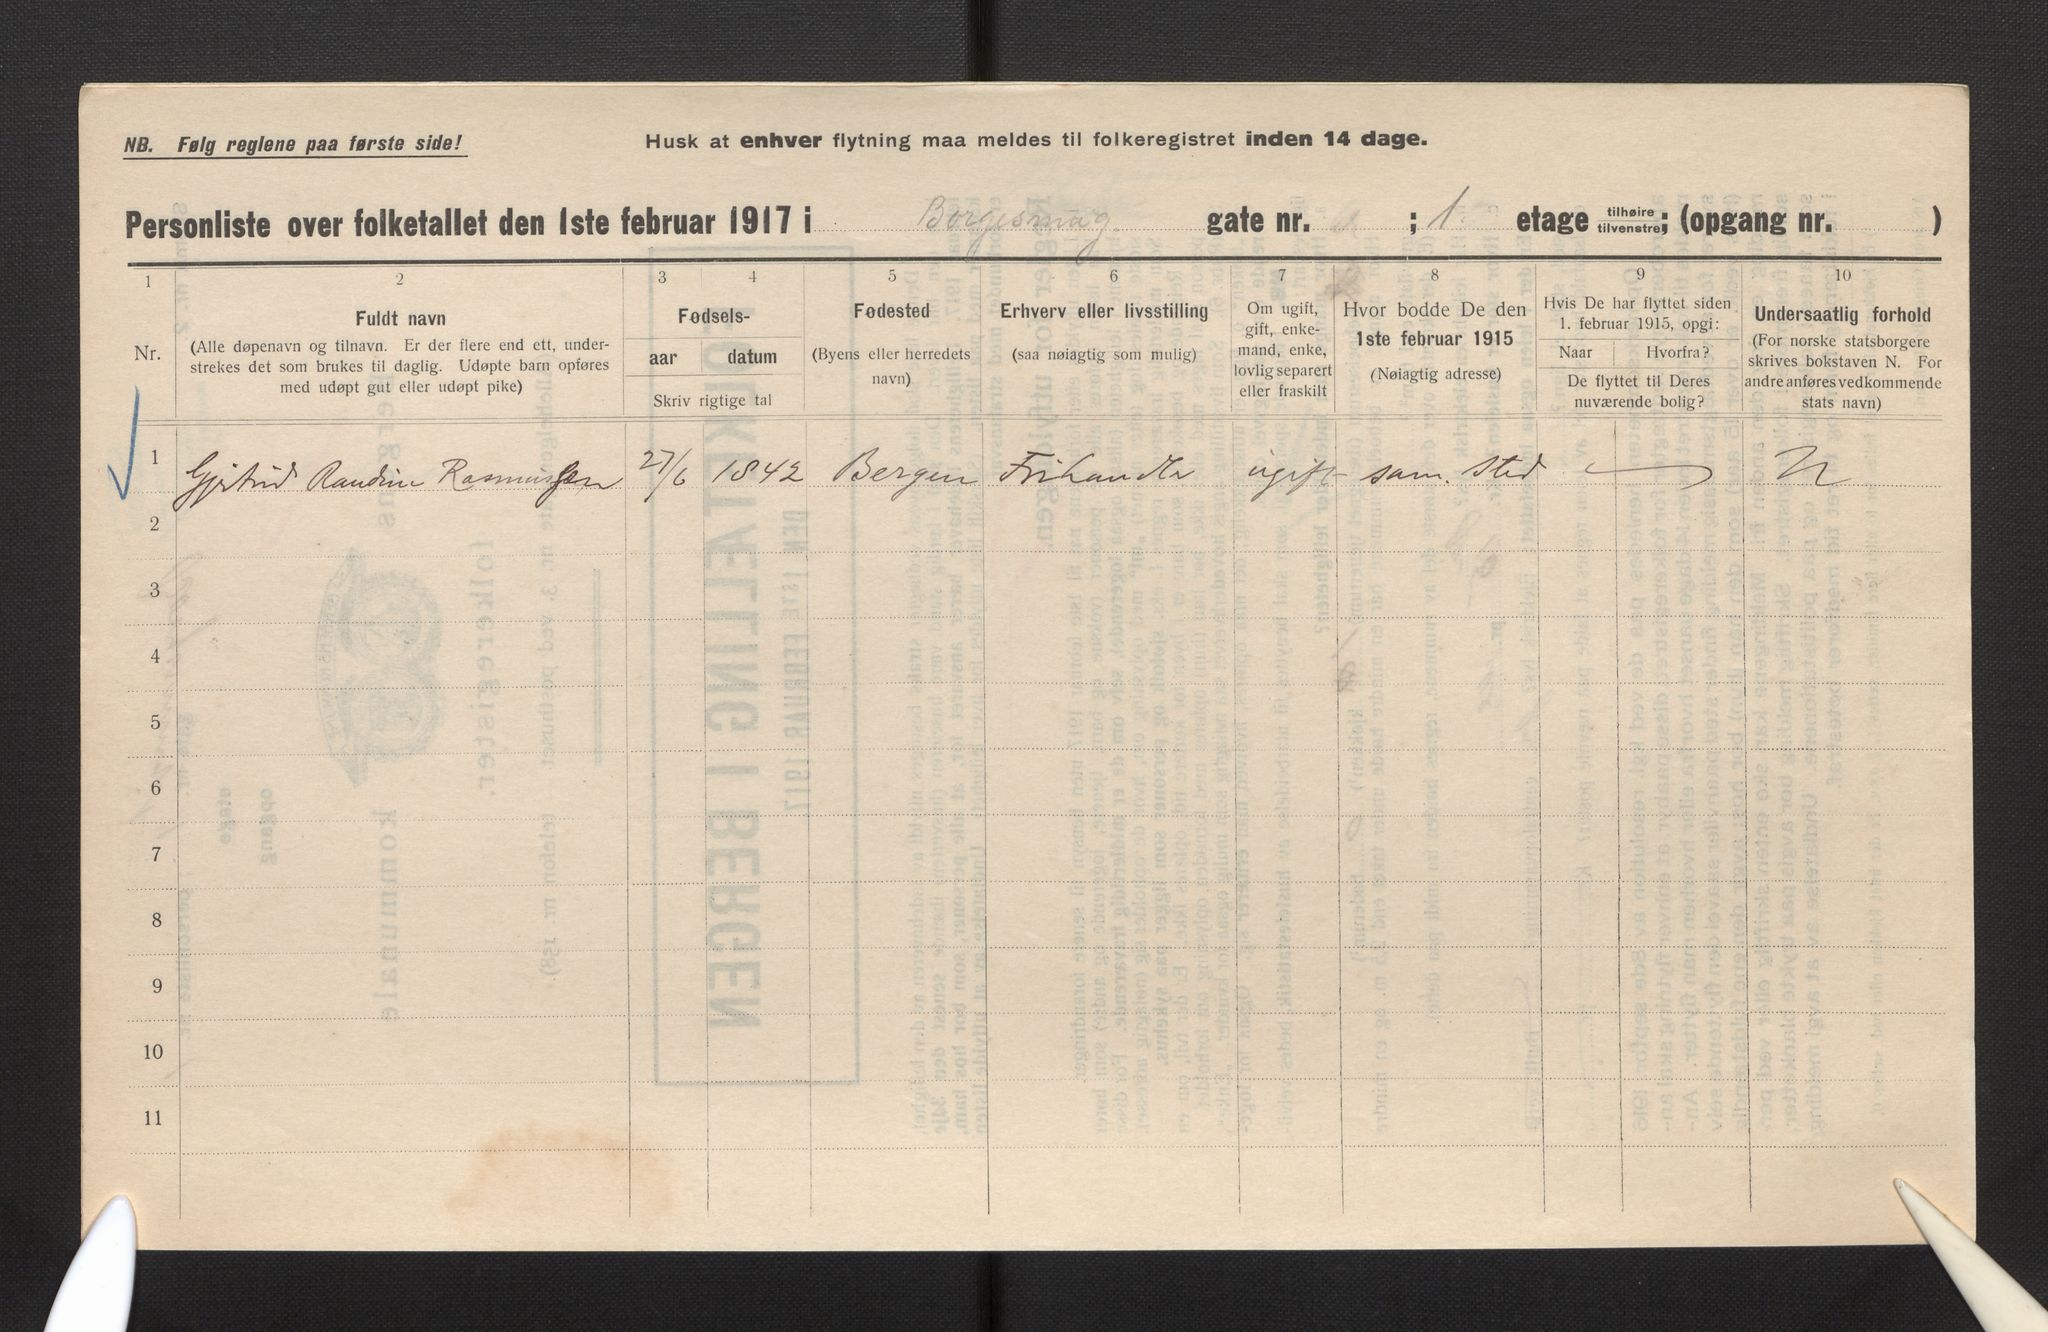 NB. Følg reglene paa første side!
Husk at enhver flytning maa meldes til folkeregistret inden 14 dage.
Personliste over folketallet den 1ste februar 1917 i Borgesmag gate nr. ; 1. etage tilhøire tilvenstre; (opgang nr. )
1 2 3 4 5 6 7 8 9 10
Nr.
Fuldt navn
(Alle døpenavn og tilnavn. Er der flere end ett, under-
strekes det som brukes til daglig. Udøpte barn opføres
med udøpt gut eller udøpt pike)
Fødsels-
aar datum
Skriv rigtige tal
Fødested
(Byens eller herredets
navn)
Erhverv eller livsstilling
(saa nøiagtig som mulig)
Om ugift,
gift, enke-
mand, enke,
lovlig separert
eller fraskilt
Hvor bodde De den
1ste februar 1915
(Nøiagtig adresse)
Hvis De har flyttet siden
1. februar 1915, opgi:
Naar Hvorfra?
De flyttet til Deres
nuværende bolig?
Undersaatlig forhold
(For norske statsborgere
skrives bokstaven N. For
andre anføres vedkommende
stats navn)
1 Gjertrud Randine Rasmussen 27/6 1842 Bergen Frihandle ugift sam. sted N
2
3
4
5
6
7
8
9
10
11